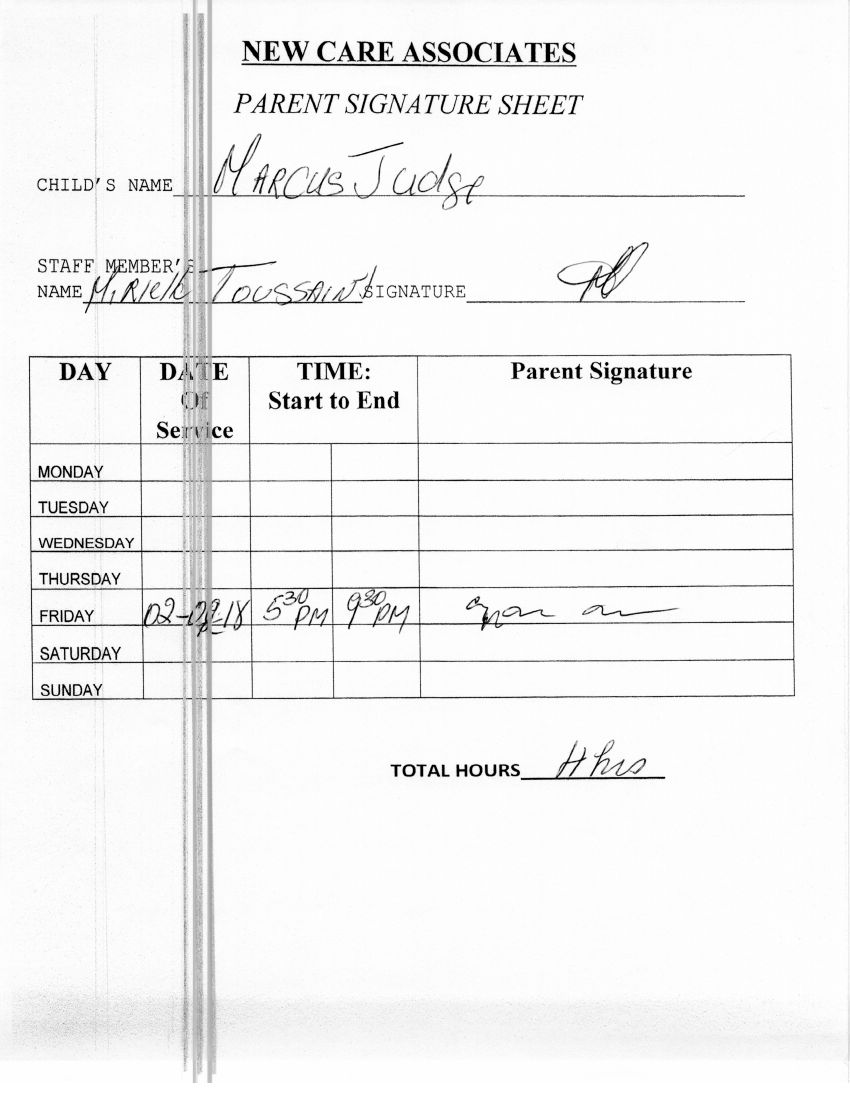 NEW CARE ASSOCIATES
PARENT SIGNATURE SHEET
CHILD'S NAME Marcus Judge
STAFF MEMBER'S
NAME Mirielle Toussaint SIGNATURE
DAY DATE Of Service TIME: Start to End Parent Signature
MONDAY
TUESDAY
WEDNESDAY
THURSDAY
FRIDAY 02-09-18 5 30 PM 9 30 PM
SATURDAY
SUNDAY
TOTAL HOURS 4 hrs